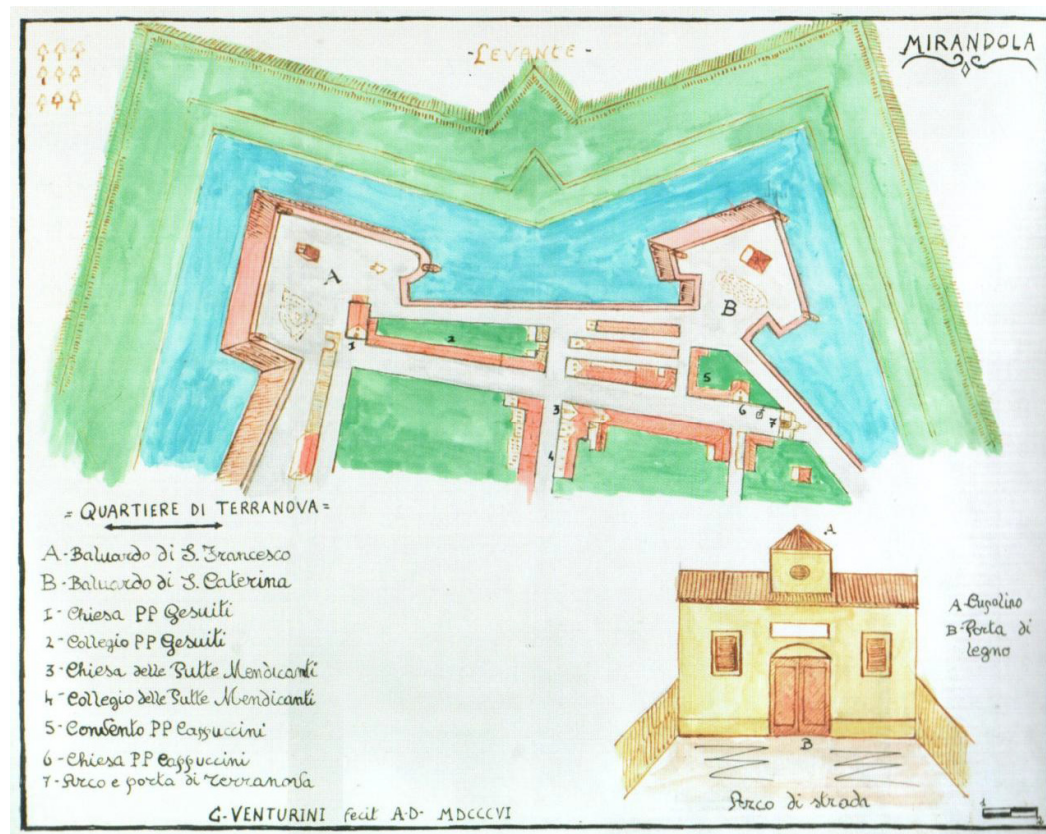 -LEVANTE-
MIRANDOLA
A
B
1
2
3
4
5
6
7
= QUARTIERE DI TERRANOVA =
A-Baluardo di S. Francesco
B-Baluardo di S. Caterina
1- Chiesa PP Gesuiti
2- Collegio PP Gesuiti
3- Chiesa delle Putte Mendicanti
4- Collegio delle Putte Mendicanti
5- Convento PP Cappuccini
6- Chiesa PP Cappuccini
7- Arco e porta di Terranova
G. VENTURINI fecit A.D. MDCCCVI
A
B
A-Cupolino
B-Porta di
legno
Arco di strada